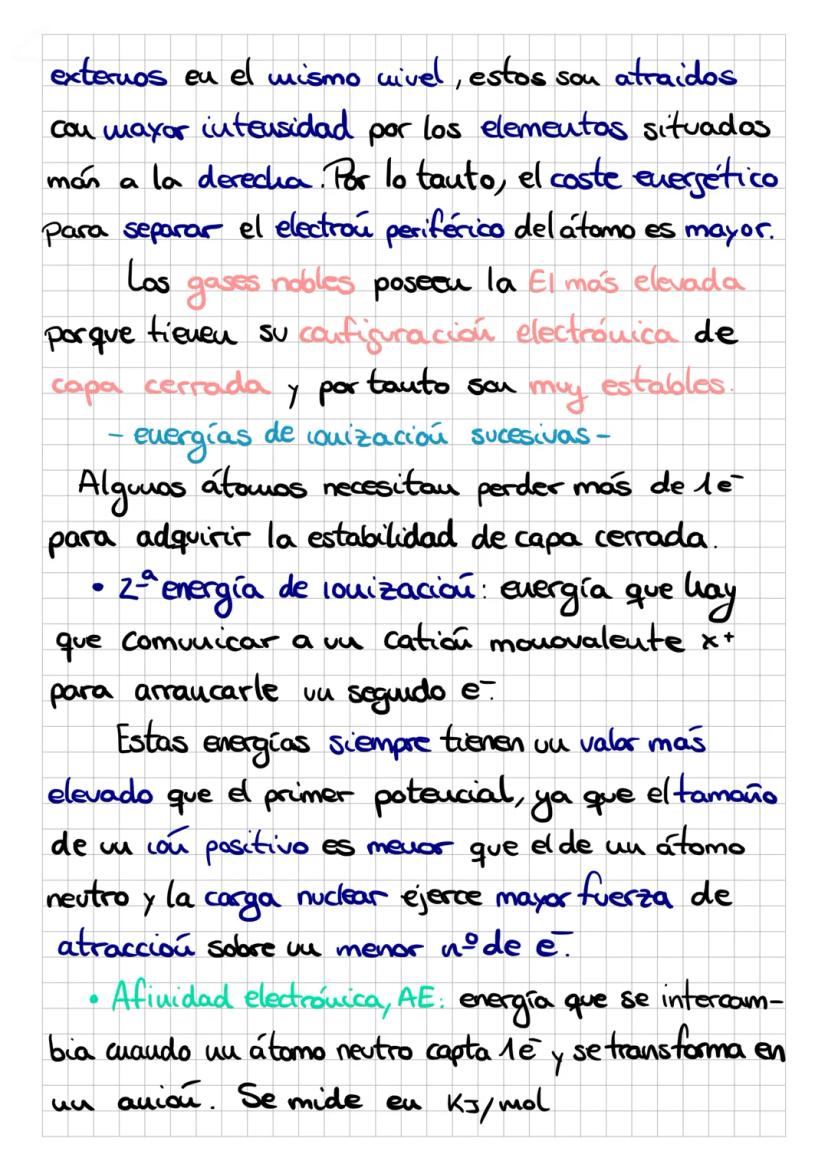 externos en el mismo nivel, estos son atraidos
con mayor intensidad por los elementos situados
más a la derecha. Por lo tanto, el coste energético
para separar el electrón periférico del átomo es mayor.
Los gases nobles poseen la EI más elevada
porque tienen su configuración electrónica de
capa cerrada y por tanto son muy estables.
- energías de ionización sucesivas -
Algunos átomos necesitan perder más de 1e⁻
para adquirir la estabilidad de capa cerrada.
• 2ª energía de ionización: energía que hay
que comunicar a un catión monovalente x⁺
para arrancarle un segundo e⁻.
Estas energías siempre tienen un valor más
elevado que el primer potencial, ya que el tamaño
de un ión positivo es menor que el de un átomo
neutro y la carga nuclear ejerce mayor fuerza de
atracción sobre un menor nº de e⁻.
• Afinidad electrónica, AE: energía que se intercam-
bia cuando un átomo neutro capta 1e⁻ y se transforma en
un anión. Se mide en KJ/mol